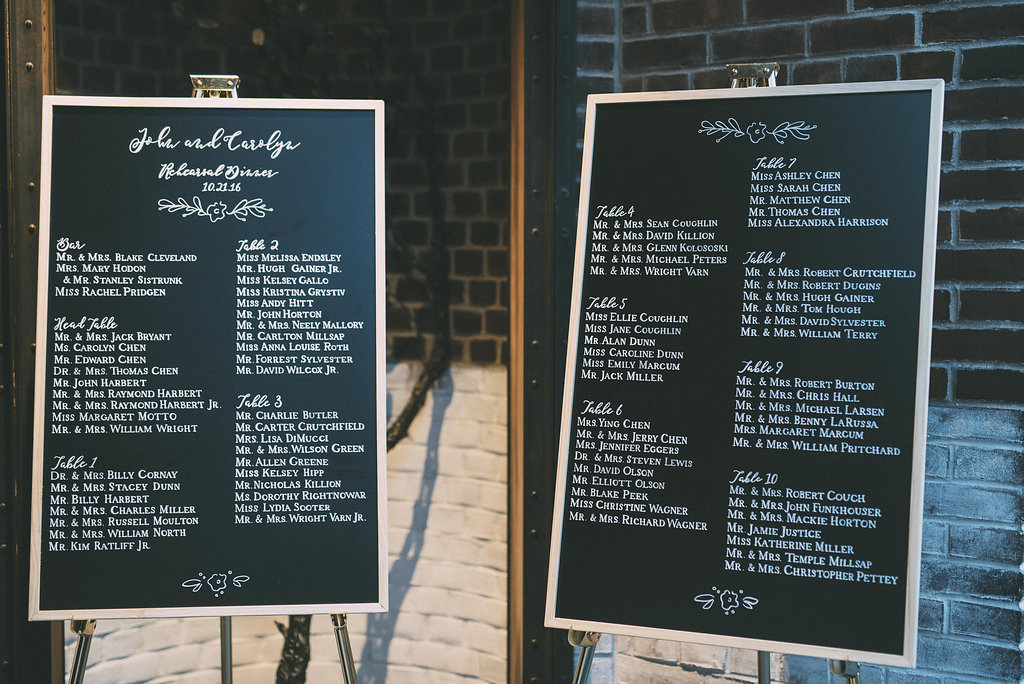 John and Carolyn
Rehearsal Dinner
10.21.16
Bar
Mr. & Mrs. Blake Cleveland
Mrs. Mary Hodon
& Mr. Stanley Sistrunk
Miss Rachel Pridgen
Head Table
Mr. & Mrs. Jack Bryant
Ms. Carolyn Chen
Mr. Edward Chen
Dr. & Mrs. Thomas Chen
Mr. John Harbert
Mr. & Mrs. Raymond Harbert
Mr. & Mrs. Raymond Harbert Jr.
Miss Margaret Motto
Mr. & Mrs. William Wright
Table 1
Dr. & Mrs. Billy Cornay
Mr. & Mrs. Stacey Dunn
Mr. Billy Harbert
Mr. & Mrs. Charles Miller
Mr. & Mrs. Russell Moulton
Mr. & Mrs. William North
Mr. Kim Ratliff Jr.
Table 2
Miss Melissa Endsley
Mr. Hugh Gainer Jr.
Miss Kelsey Gallo
Miss Kristina Grystiv
Miss Andy Hitt
Mr. John Horton
Mr. & Mrs. Neely Mallory
Mr. Carlton Millsap
Miss Anna Louise Roth
Mr. Forrest Sylvester
Mr. David Wilcox Jr.
Table 3
Mr. Charlie Butler
Mr. Carter Crutchfield
Mrs. Lisa DiMucci
Mr. & Mrs. Wilson Green
Mr. Allen Greene
Miss Kelsey Hipp
Mr. Nicholas Killion
Ms. Dorothy Rightnowar
Miss Lydia Sooter
Mr. & Mrs. Wright Varn Jr.
Table 4
Mr. & Mrs. Sean Coughlin
Mr. & Mrs. David Killion
Mr. & Mrs. Glenn Kolososki
Mr. & Mrs. Michael Peters
Mr. & Mrs. Wright Varn
Table 5
Miss Ellie Coughlin
Miss Jane Coughlin
Mr. Alan Dunn
Miss Caroline Dunn
Miss Emily Marcum
Mr. Jack Miller
Table 6
Mrs. Ying Chen
Mr. & Mrs. Jerry Chen
Mrs. Jennifer Eggers
Dr. & Mrs. Steven Lewis
Mr. David Olson
Mr. Elliott Olson
Mr. Blake Peek
Miss Christine Wagner
Mr. & Mrs. Richard Wagner
Table 7
Miss Ashley Chen
Miss Sarah Chen
Mr. Matthew Chen
Mr. Thomas Chen
Miss Alexandra Harrison
Table 8
Mr. & Mrs. Robert Crutchfield
Mr. & Mrs. Robert Dugins
Mr. & Mrs. Hugh Gainer
Mr. & Mrs. Tom Hough
Mr. & Mrs. David Sylvester
Mr. & Mrs. William Terry
Table 9
Mr. & Mrs. Robert Burton
Mr. & Mrs. Chris Hall
Mr. & Mrs. Michael Larsen
Mr. & Mrs. Benny LaRussa
Mrs. Margaret Marcum
Mr. & Mrs. William Pritchard
Table 10
Mr. & Mrs. Robert Couch
Mr. & Mrs. John Funkhouser
Mr. & Mrs. Mackie Horton
Mr. Jamie Justice
Miss Katherine Miller
Mr. & Mrs. Temple Millsap
Mr. & Mrs. Christopher Pettey